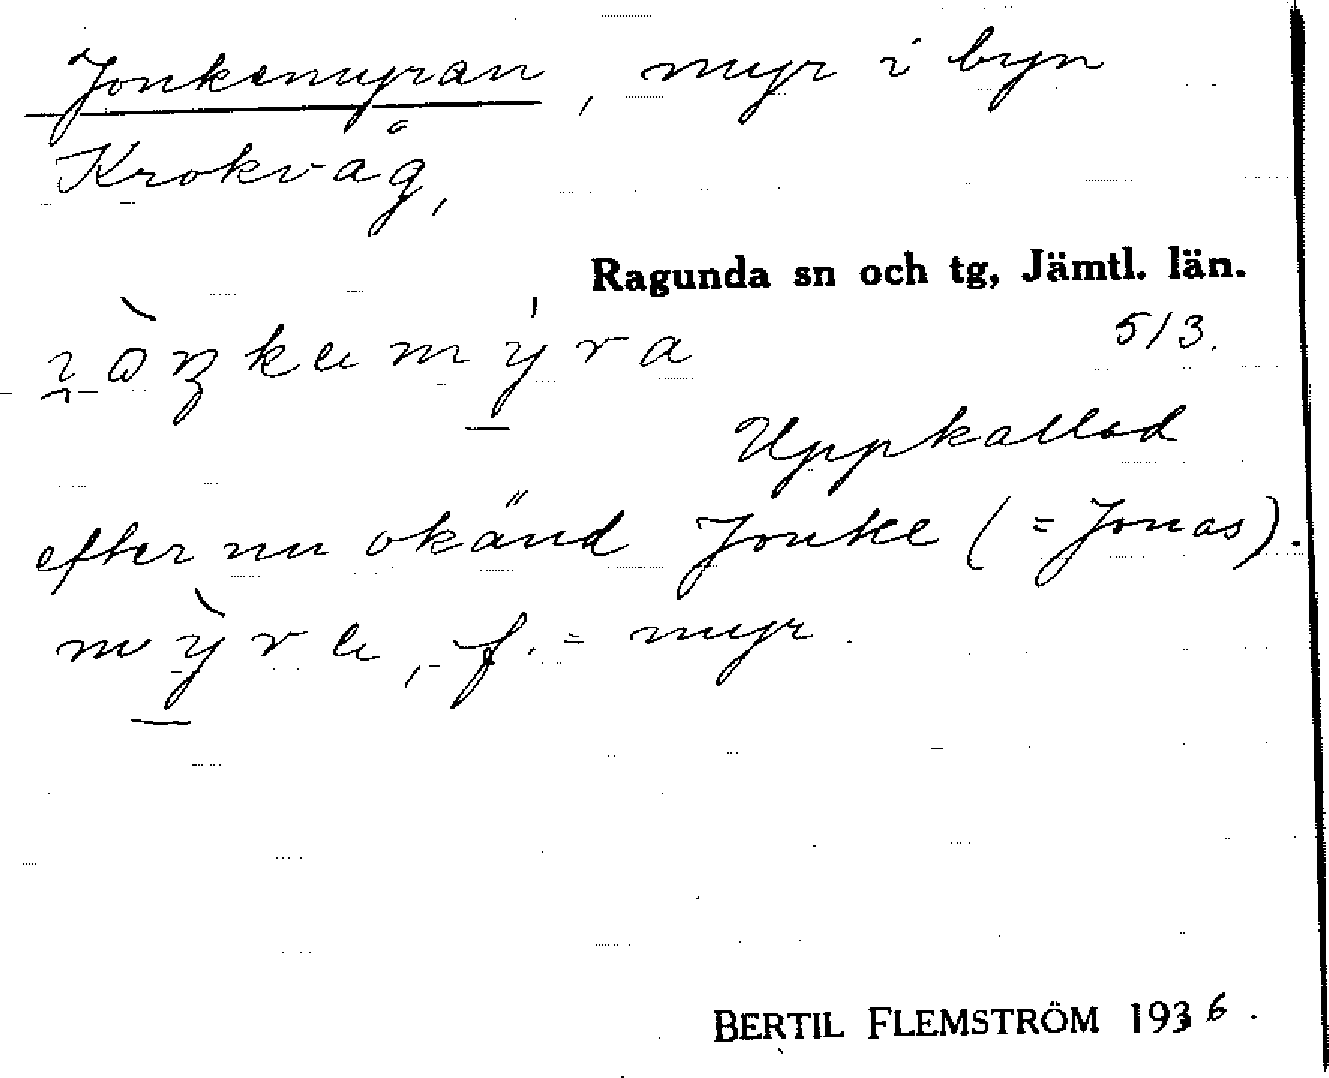 Jonkemyran, myr i byn
Krokvåg,
Ragunda sn och tg, Jämtl. län.
513.
Uppkallad
efter nu okänd Jonke (= Jonas).
f. = myr.
BERTIL FLEMSTRÖM 1936.